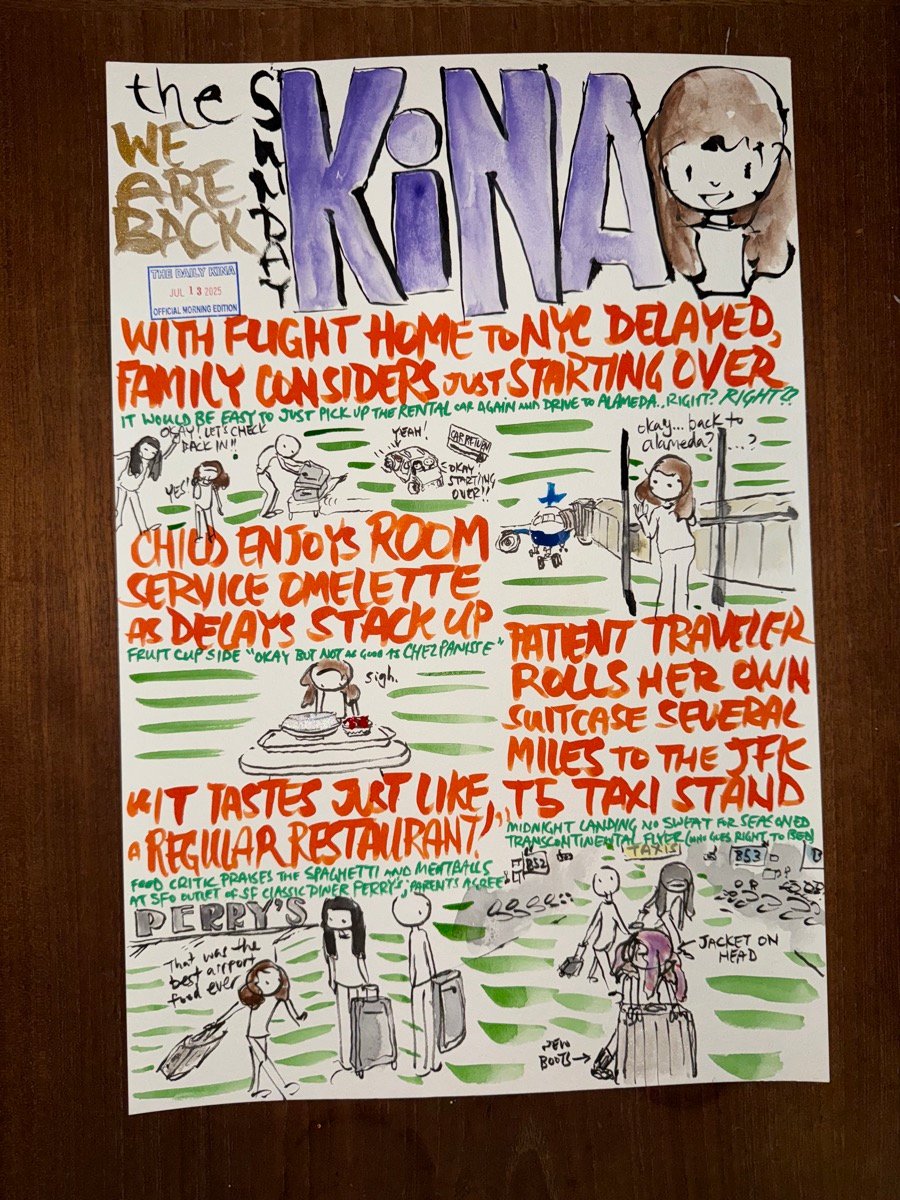 the
SUNDAY
KiNA
WE
ARE
BACK
THE DAILY KINA
JUL 13 2025
OFFICIAL MORNING EDITION
WITH FLIGHT HOME TO NYC DELAYED,
FAMILY CONSIDERS JUST STARTING OVER
IT WOULD BE EASY TO JUST PICK UP THE RENTAL CAR AGAIN AND DRIVE TO ALAMEDA.. RIGHT? RIGHT??
OKAY! LET'S CHECK
BACK IN!!
YES!
YEAH!
CAR RETURN
OKAY!
STARTING
OVER!!
okay... back to
alameda? ....?
CHILD ENJOYS ROOM
SERVICE OMELETTE
AS DELAYS STACK UP
FRUIT CUP SIDE "OKAY BUT NOT AS GOOD AS CHEZ PANISSE"
sigh.
"IT TASTES JUST LIKE
A REGULAR RESTAURANT,"
FOOD CRITIC PRAISES THE SPAGHETTI AND MEATBALLS
AT SFO OUTLET OF SF CLASSIC DINER PERRY'S; PARENTS AGREE
PERRY'S
That was the
best airport
food ever
PATIENT TRAVELER
ROLLS HER OWN
SUITCASE SEVERAL
MILES TO THE JFK
T5 TAXI STAND
MIDNIGHT LANDING NO SWEAT FOR SEASONED
TRANSCONTINENTAL FLYER (WHO GOES RIGHT TO BED)
TAXIS
B52
B53
JACKET ON
HEAD
NEW
BOOTS